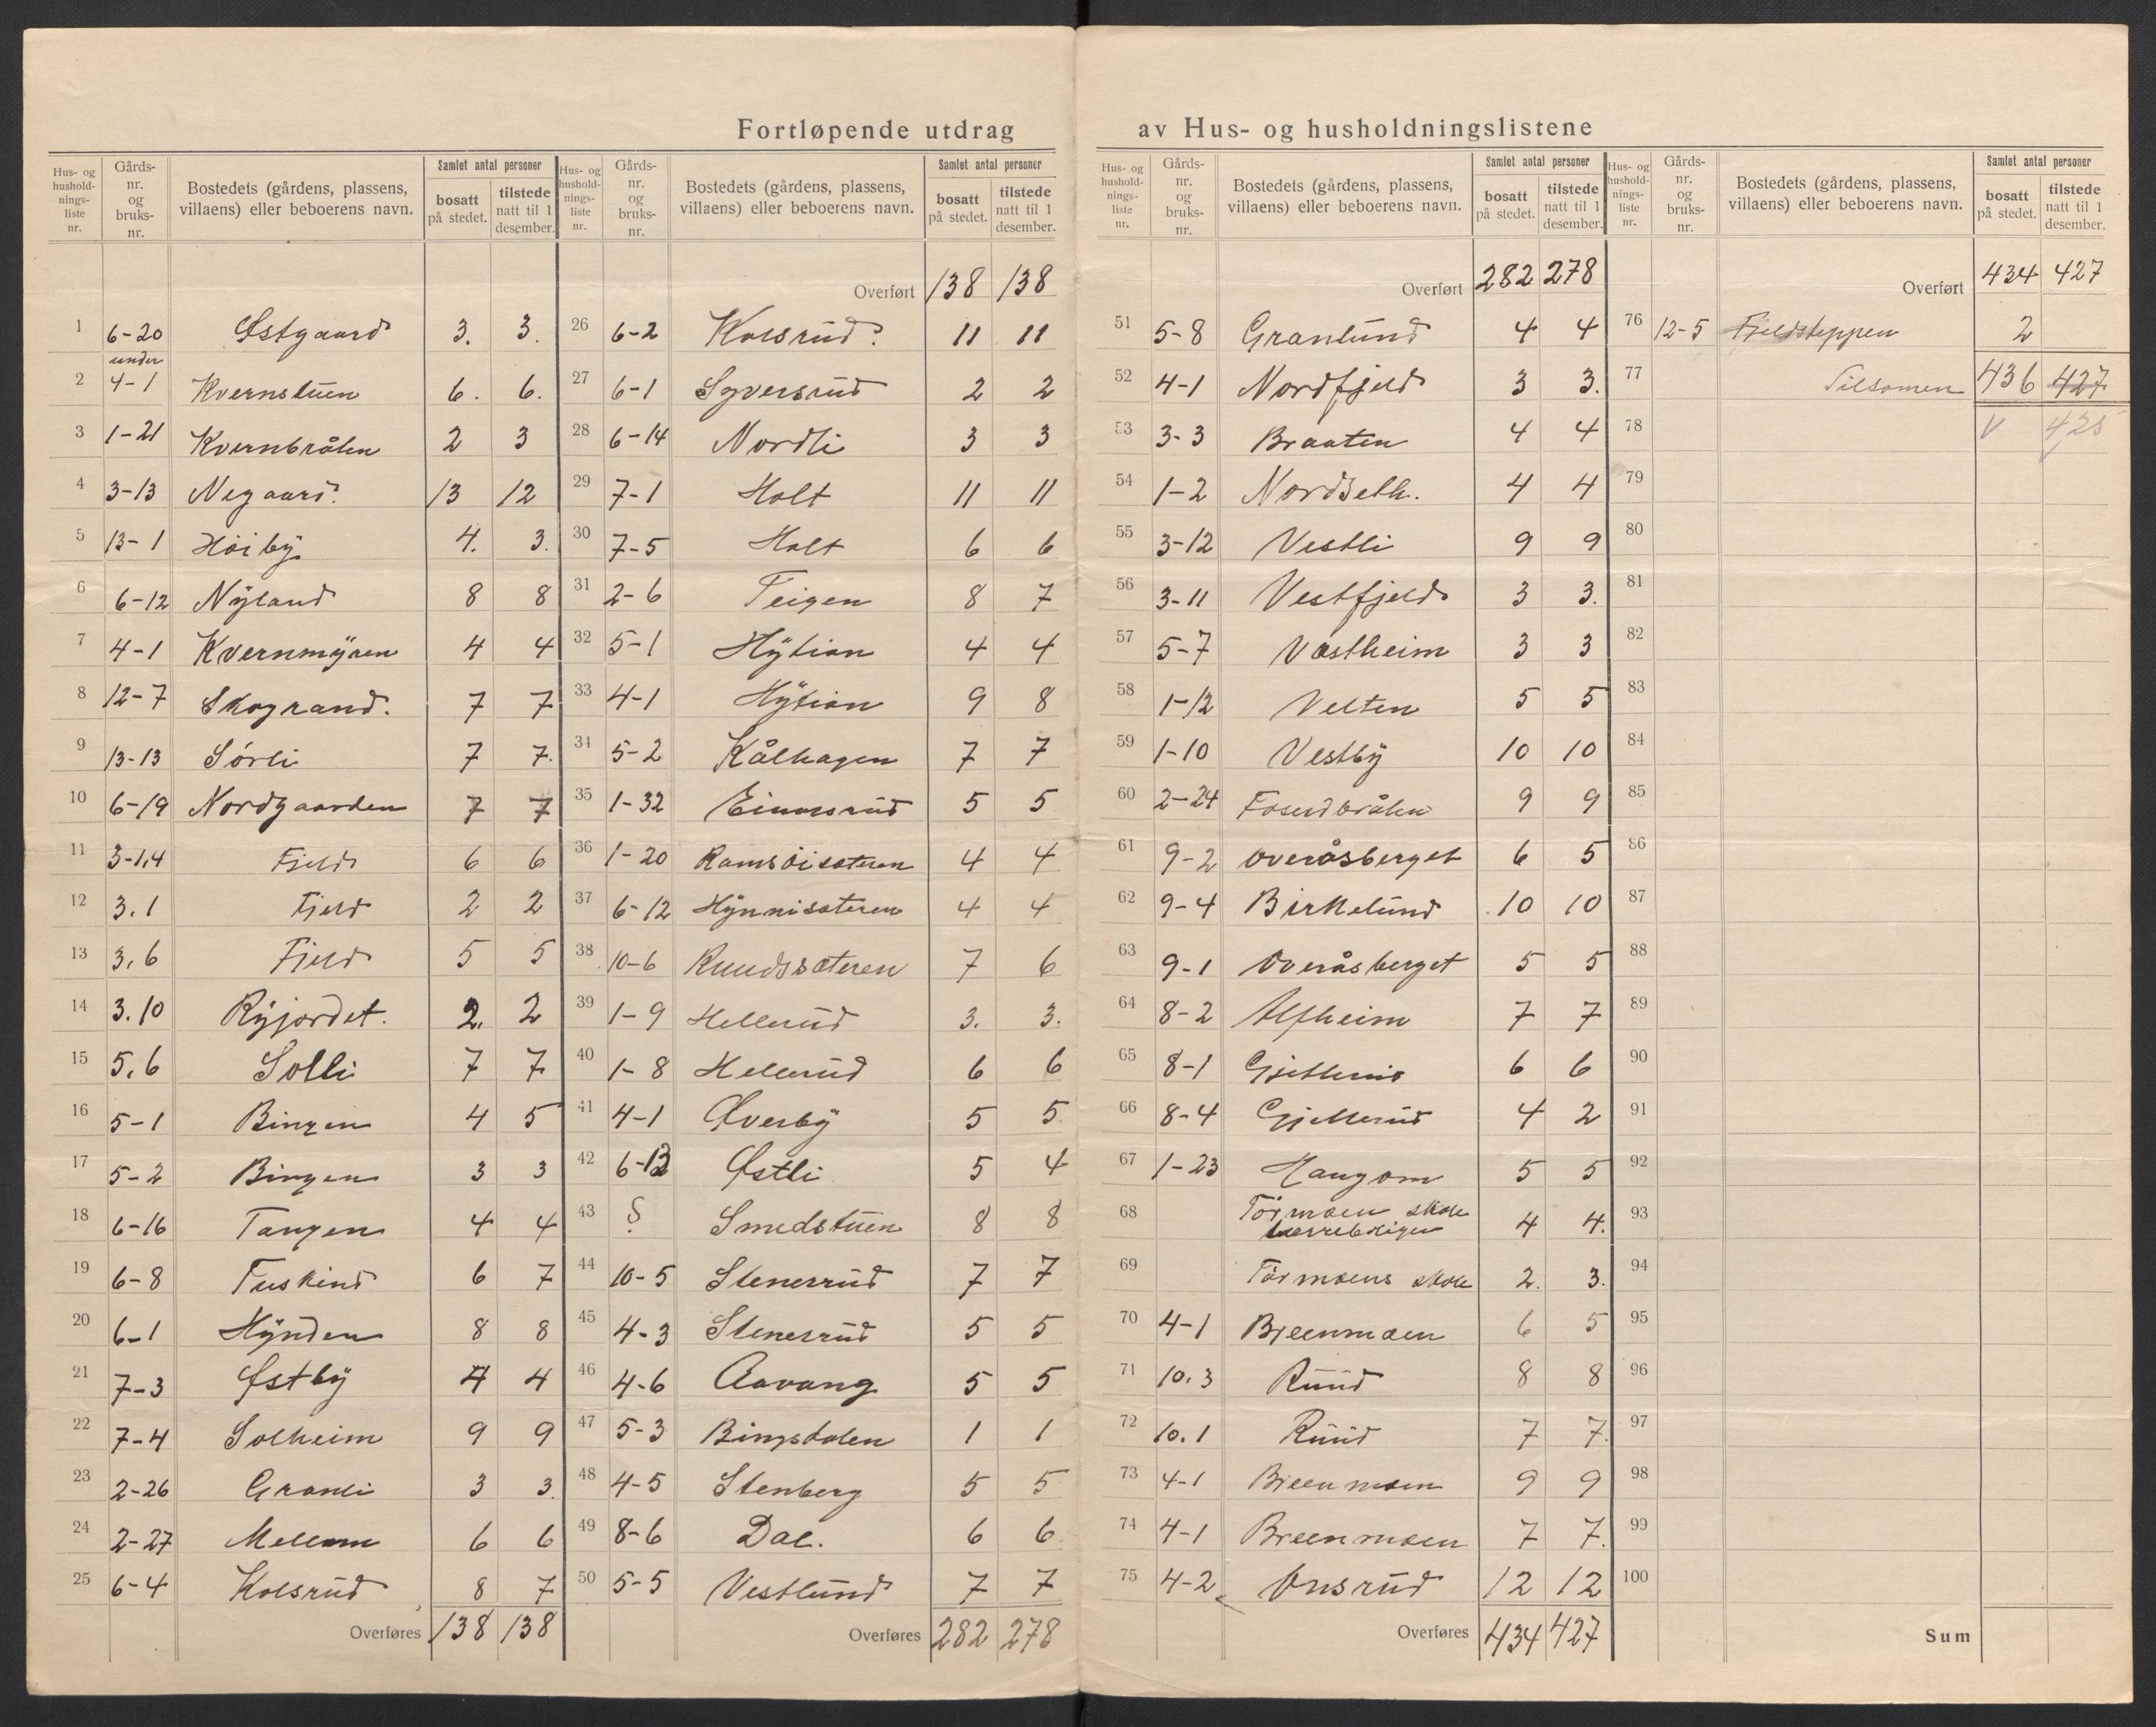 Fortløpende utdrag av Hus- og husholdningslistene
Hus- og husholdningsliste nr. | Gårds- nr. og bruks- nr. | Bostedets (gårdens, plassens, villaens) eller beboerens navn. | Samlet antal personer | bosatt på stedet. | tilstede natt til 1 desember.
1 6-20 Østgaard 3. 3.
under
2 4-1 Kvernstuen 6. 6.
3 1-21 Kvernbråten 2 3
4 3-13 Negaard. 13 12
5 13-1 Høiby 4. 3.
6 6-12 Nyland 8 8
7 4-1 Kvernmyren 4 4
8 12-7 Skogrand. 7 7
9 13-13 Sørli 7 7.
10 6-19 Nordgaarden 7 7
11 3-1,4 Fjeld 6 6
12 3.1 Fjeld 2 2
13 3.6 Fjeld 5 5
14 3.10 Ryjordet. 2. 2
15 5.6 Solli 7 7
16 5-1 Bingen 4 5
17 5-2 Bingen 3 3
18 6-16 Tangen 4 4
19 6-8 Tuskind 6 7
20 6-1 Hynden 8 8
21 7-3 Østby 4 4
22 7-4 Solheim 9 9
23 2-26 Granli 3 3.
24 2-27 Mellem 6 6
25 6-4 Kolsrud 8 7
Overføres 138 138
Hus- og husholdningsliste nr. | Gårds- nr. og bruks- nr. | Bostedets (gårdens, plassens, villaens) eller beboerens navn. | Samlet antal personer | bosatt på stedet. | tilstede natt til 1 desember.
Overført 138 138
26 6-2 Kolsrud. 11 11
27 6-1 Syversrud 2 2
28 6-14 Nordli 3 3
29 7-1 Holt 11 11
30 7-5 Holt 6 6
31 2-6 Teigen 8 7
32 5-1 Hytion 4 4
33 4-1 Hytion 9 8
34 5-2 Kålhagen 7 7
35 1-32 Einarsrud 5 5
36 1-20 Ramsøisæteren 4 4
37 6-12 Hynnisæteren 4 4
38 10-6 Ruudssæteren 7 6
39 1-9 Hellerud 3. 3.
40 1-8 Hellerud 6 6
41 4-1 Øverby 5 5
42 6-12 Østli 5 4
43 ? Smedstuen 8 8
44 10-5 Stenersrud 7 7
45 4-3 Stenersrud 5 5
46 4-6 Aavang 5 5
47 5-3 Bingsdalen 1 1
48 4-5 Stenberg 5 5
49 8-6 Dal. 6 6
50 5-5 Vestlund 7 7
Overføres 282 278
Hus- og husholdningsliste nr. | Gårds- nr. og bruks- nr. | Bostedets (gårdens, plassens, villaens) eller beboerens navn. | Samlet antal personer | bosatt på stedet. | tilstede natt til 1 desember.
Overført 282 278
51 5-8 Granlund 4 4
52 4-1 Nordfjeld 3 3.
53 3-3 Braaten 4 4
54 1-2 Nordseth. 4 4
55 3-12 Vestli 9 9
56 3-11 Vestfjeld 3 3.
57 5-7 Vestheim 3 3
58 1-12 Velten 5 5
59 1-10 Vestby 10 10
60 2-24 Foserdbråten 9 9
61 9-2 Overåsberget 6 5
62 9-4 Birkelund 10 10
63 9-1 Overåsberget 5 5
64 8-2 Alfheim 7 7
65 8-1 Gjellerud 6 6
66 8-4 Gjellerud 4 2
67 1-23 Haugom 5 5
68 Tørmoen skole
lærreboligen 4 4.
69 Tørmoens skole 2. 3.
70 4-1 Breenmoen 6 5
71 10.3 Ruud 8 8
72 10.1 Ruud 7 7.
73 4-1 Breenmoen 9 9
74 4-1 Breenmoen 7 7.
75 4-2 Onsrud 12 12
Overføres 434 427
Hus- og husholdningsliste nr. | Gårds- nr. og bruks- nr. | Bostedets (gårdens, plassens, villaens) eller beboerens navn. | Samlet antal personer | bosatt på stedet. | tilstede natt til 1 desember.
Overført 434 427
76 12-5 Fjeldsteppen 2
77 Tilsamen 436 427
78 V 425
79
80
81
82
83
84
85
86
87
88
89
90
91
92
93
94
95
96
97
98
99
100
Sum